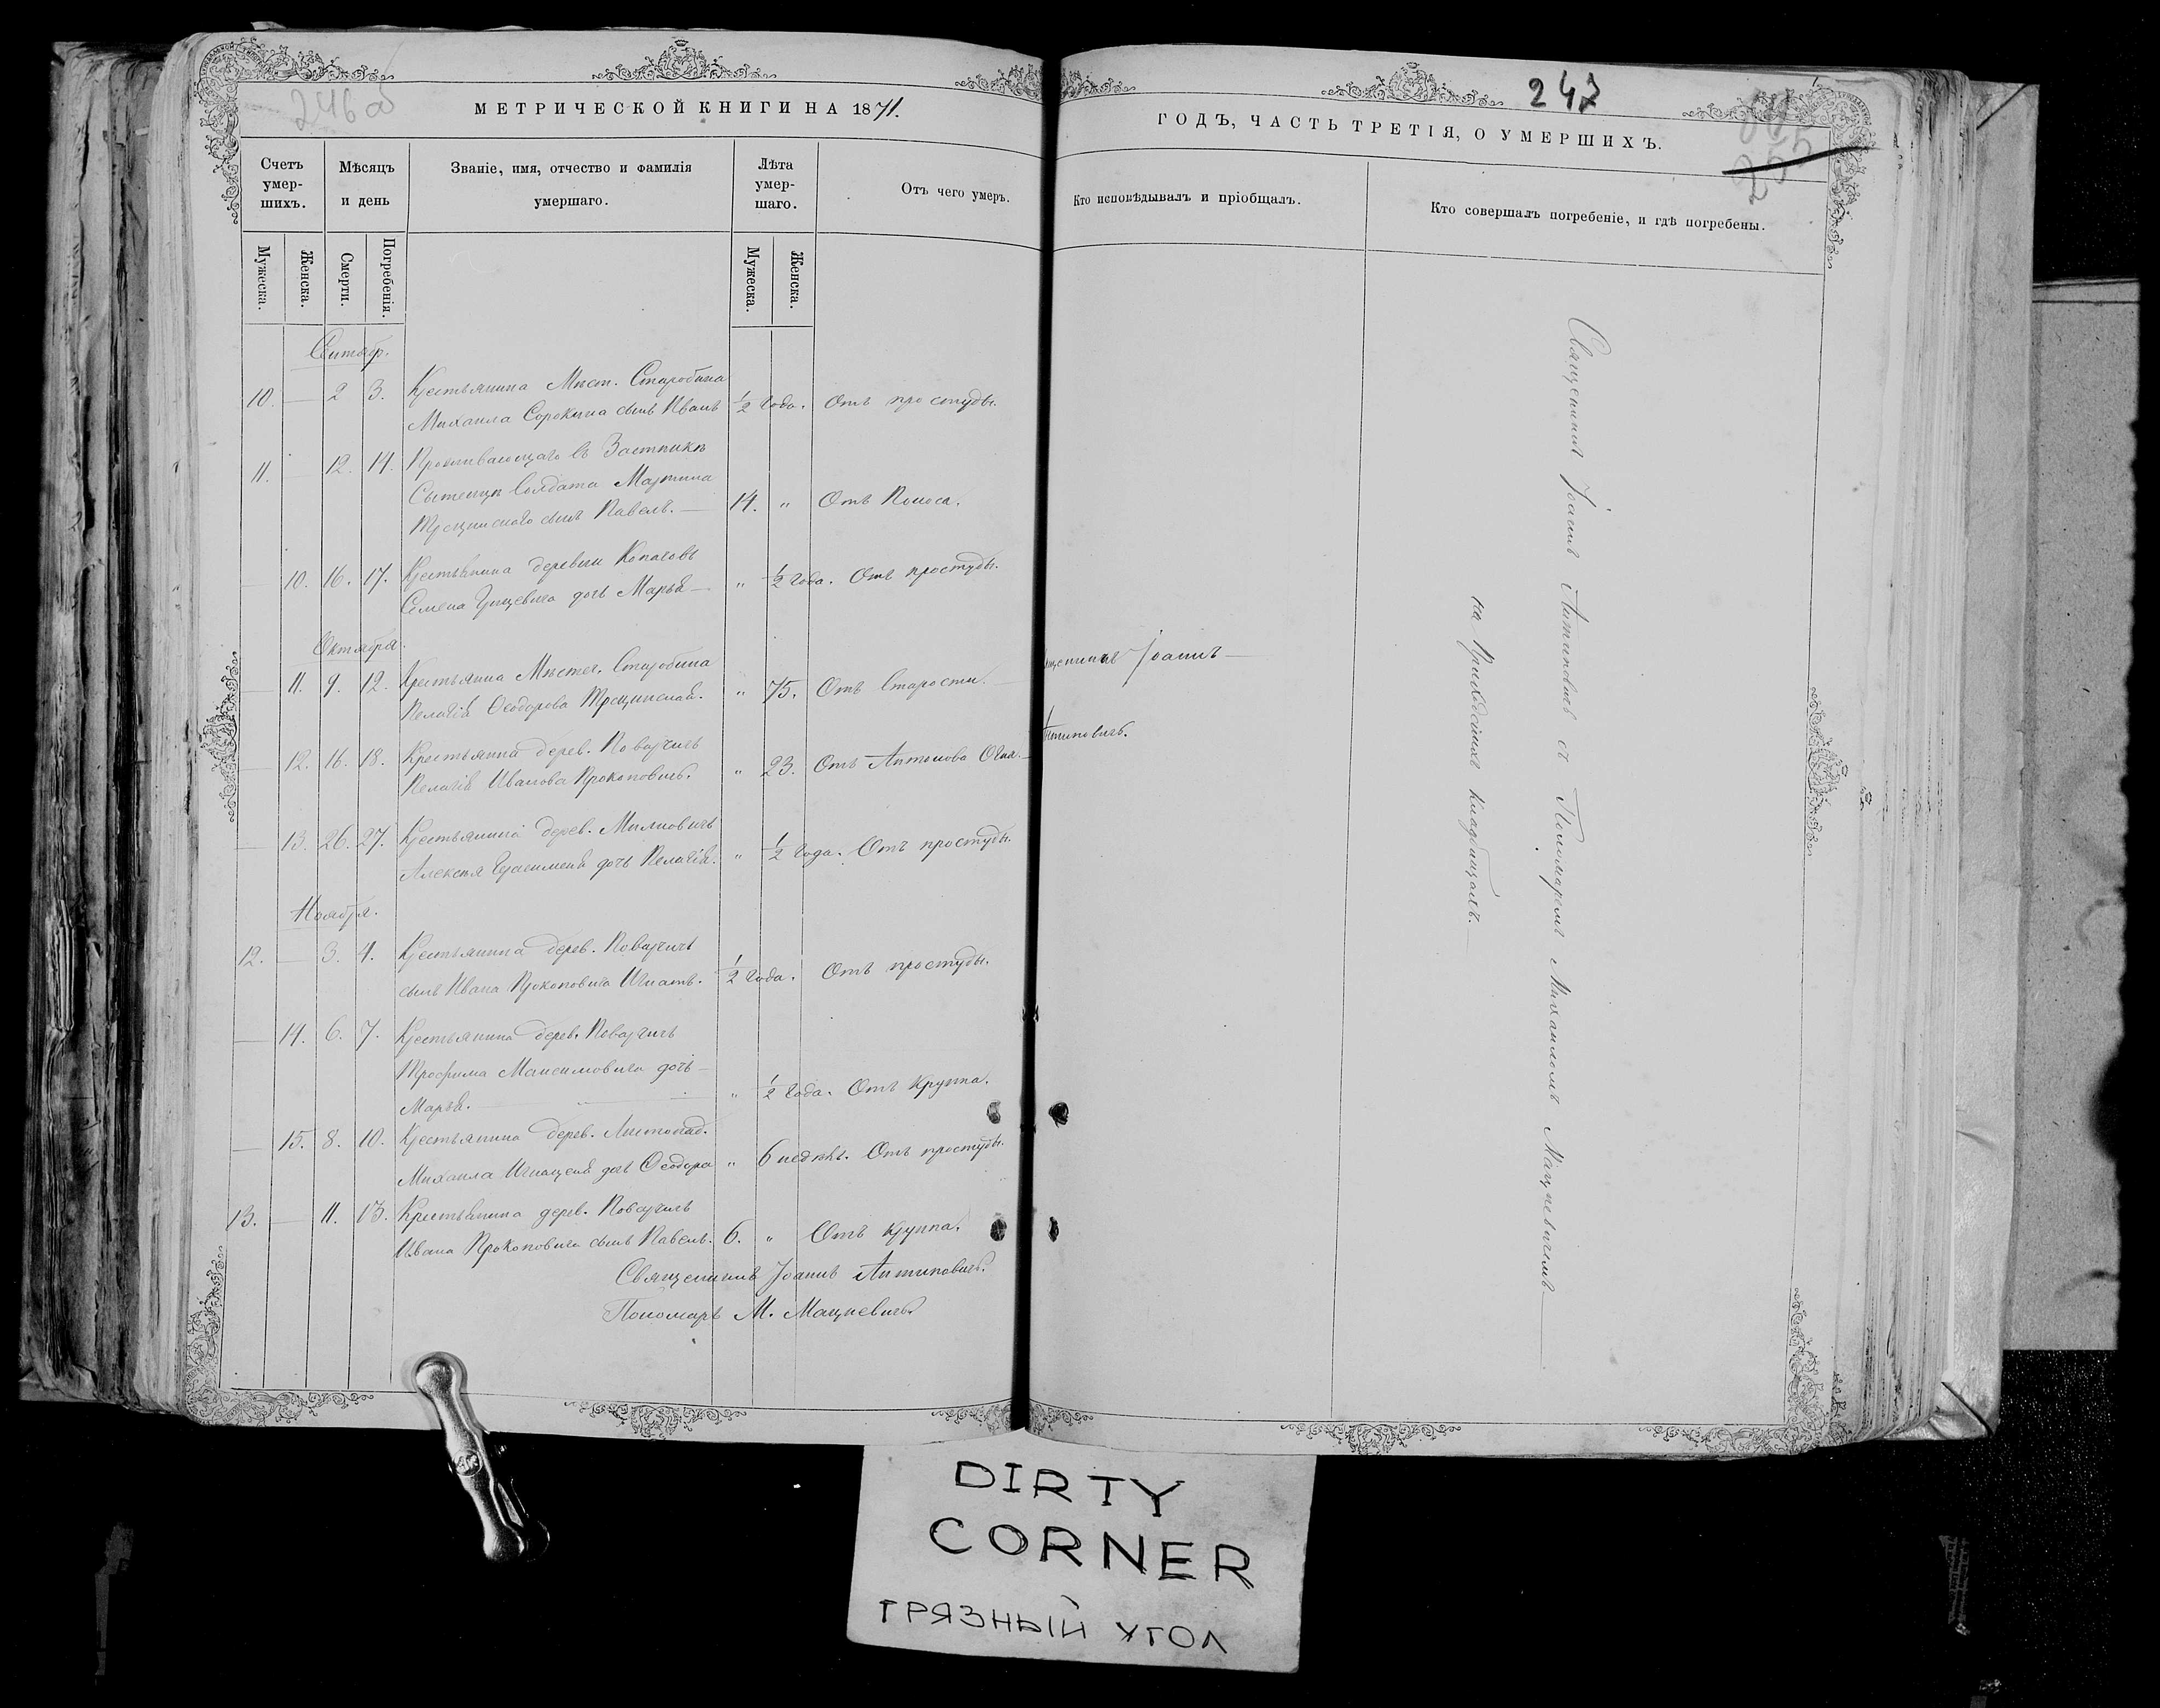 246об
МЕТРИЧЕСКОЙ КНИГИ НА 1871.
Счетъ умер-шихъ.
Мѣсяцъ и день
Званіе, имя, отчество и фамилія умершаго.
Лѣта умер-шаго.
Отъ чего умеръ.
Мужеска.
Женска.
Смерти.
Погребенія.
Мужеска.
Женска.
Сентябр.
10. — 2 3. Крестьянина Мѣст. Старобина
Михаила Сорокина сынъ Иванъ ½ года. Отъ простуды.
11. — 12. 14. Проживающаго въ
Солдата Мартина
Трещинскаго сынъ Павелъ. — 14. " Отъ Поноса.
— 10. 16. 17. Крестьянина деревни Копачовъ
Семена Грицевича дочь Марья — " ½ года. Отъ простуды.
Октября.
— 11. 9. 12. Крестьянка Мѣстеч. Старобина
Пелагія Ѳеодорова Трещинская. " 75. Отъ Старости.
— 12. 16. 18. Крестьянка дерев. Поварчичъ
Пелагія Иванова Прокоповичъ. " 23. Отъ Антонова Огня. —
— 13. 26. 27. Крестьянина дерев. Милковичъ
Алексѣя Герасименя дочь Пелагія. " ½ года. Отъ простуды.
Ноября.
12. — 3. 4. Крестьянина дерев. Поварчичъ
сынъ Ивана Прокоповича Игнатъ. ½ года. Отъ простуды.
— 14. 6. 7. Крестьянина дерев. Поварчичъ
Трофима Максимовича дочь —
Марья. — " ½ года. Отъ Круппа.
— 15. 8. 10. Крестьянина дерев. Листопад.
Михаила Игнаценя дочь Ѳеодора " 6 недѣль. Отъ простуды.
13. — 11. 13. Крестьянина дерев. Поварчичъ
Ивана Прокоповича сынъ Павелъ. 6. " Отъ круппа.
Священникъ Іоаннъ Антиповичъ.
Пономарь М. Мацкевичъ.
247
ГОДЪ, ЧАСТЬ ТРЕТІЯ, О УМЕРШИХЪ.
Кто исповѣдывалъ и пріобщалъ.
Кто совершалъ погребеніе, и гдѣ погребены.
Іоаннъ —
Священникъ Іоаннъ Антиповичъ съ Пономаремъ Михаиломъ Мацкевичемъ
на Приходскихъ кладбищахъ. —
DIRTY
CORNER
ГРЯЗНЫЙ УГОЛ